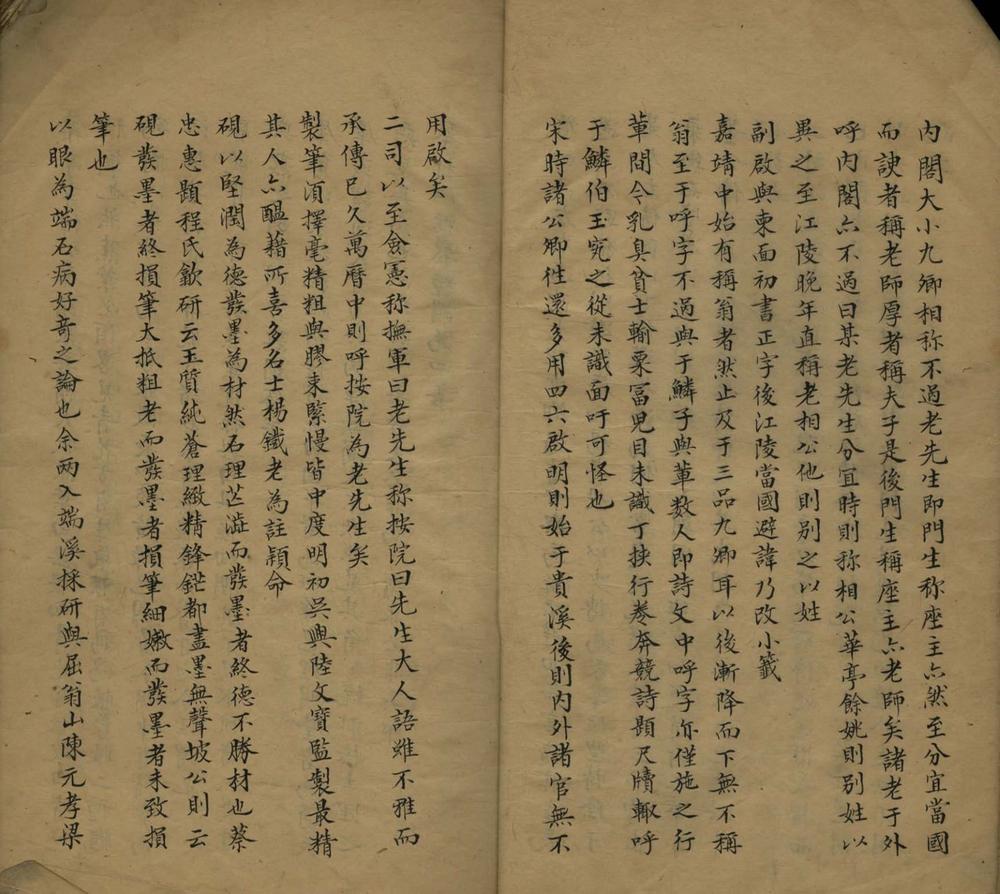 內閣大小九卿相称不過老先生即門生称座主亦然至分宜當國
而諛者稱老師厚者稱夫子是後門生稱座主亦老師矣諸老于外
呼內閣亦不過曰某老先生分宜時則称相公華亭餘姚則別姓以
異之至江陵晚年直稱老相公他則別之以姓
副啟與東面初書正字後江陵當國避諱乃改小籤
嘉靖中始有稱翁者然止及于三品九卿耳以後漸降而下無不稱
翁至于呼字不過與于鱗子與軰数人即詩文中呼字亦僅施之行
軰間今乳臭貧士輸粟冨児目未識丁挟行卷奔競詩題尺牘輙呼
于鱗伯玉究之從未識面吁可怪也
宋時諸公卿徃還多用四六啟明則始于貴溪後則內外諸官無不
用啟矣
二司以至僉憲称撫軍曰老先生称按院曰先生大人語雖不雅而
承傳已久萬曆中則呼按院為老先生矣
製筆湏擇毫精粗與膠束緊慢皆中度明初吳興陸文寶監製最精
其人亦醖藉所喜多名士楊鐵老為註穎命
硯以堅潤為德發墨為材然石理芒澁而發墨者終德不勝材也蔡
忠惠題程氏歙研云玉質純蒼理緻精鋒鋩都盡墨無聲坡公則云
硯發墨者終損筆大抵粗老而發墨者損筆細嫩而發墨者未致損
筆也
以眼為端石病好奇之論也余兩入端溪採研與屈翁山陳元孝梁